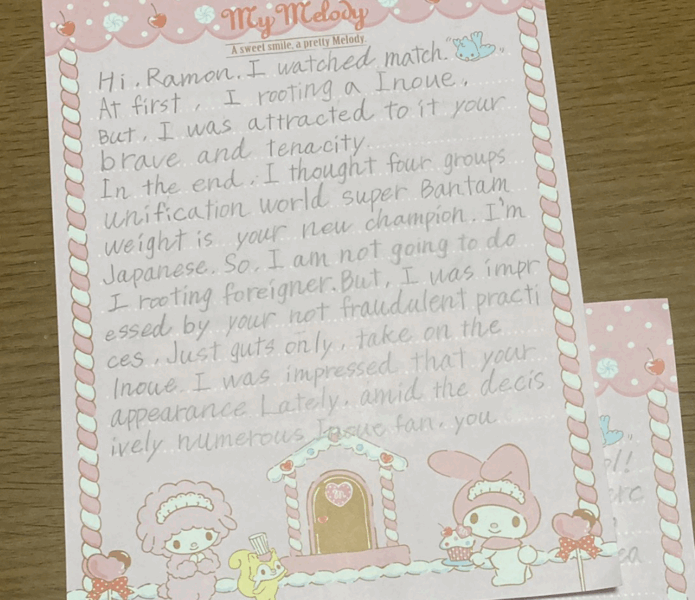 My Melody
A sweet smile, a pretty Melody.
Hi, Ramon, I watched match.
At first, I rooting a Inoue,
But, I was attracted to it your
brave and tenacity
In the end, I thought four groups
unification world super Bantam
weight is your new champion. I'm
Japanese. So, I am not going to do
I rooting foreigner. But, I was impr
essed by your not fraudulent practi
ces, Just guts only, take on the
Inoue. I was impressed that your
appearance Lately, amid the decis
ively numerous Inoue fan, you